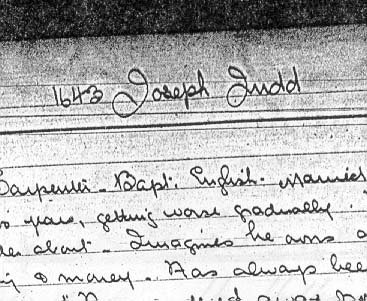 1643 Joseph Judd
Carpenter - Bapt. English. Married
years, getting worse gradually.
about - Imagines he owns a
& money - Has always bee